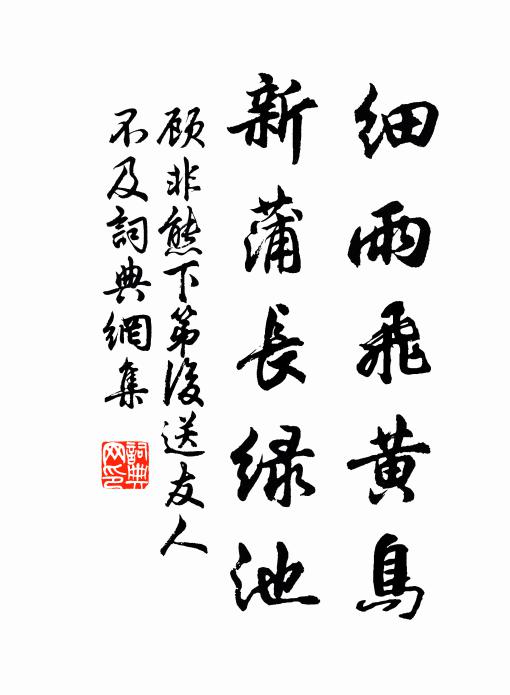 细雨飛黄鳥
新蒲長绿池
顾非熊下第後送友人
不及詞典網集
詞典网印